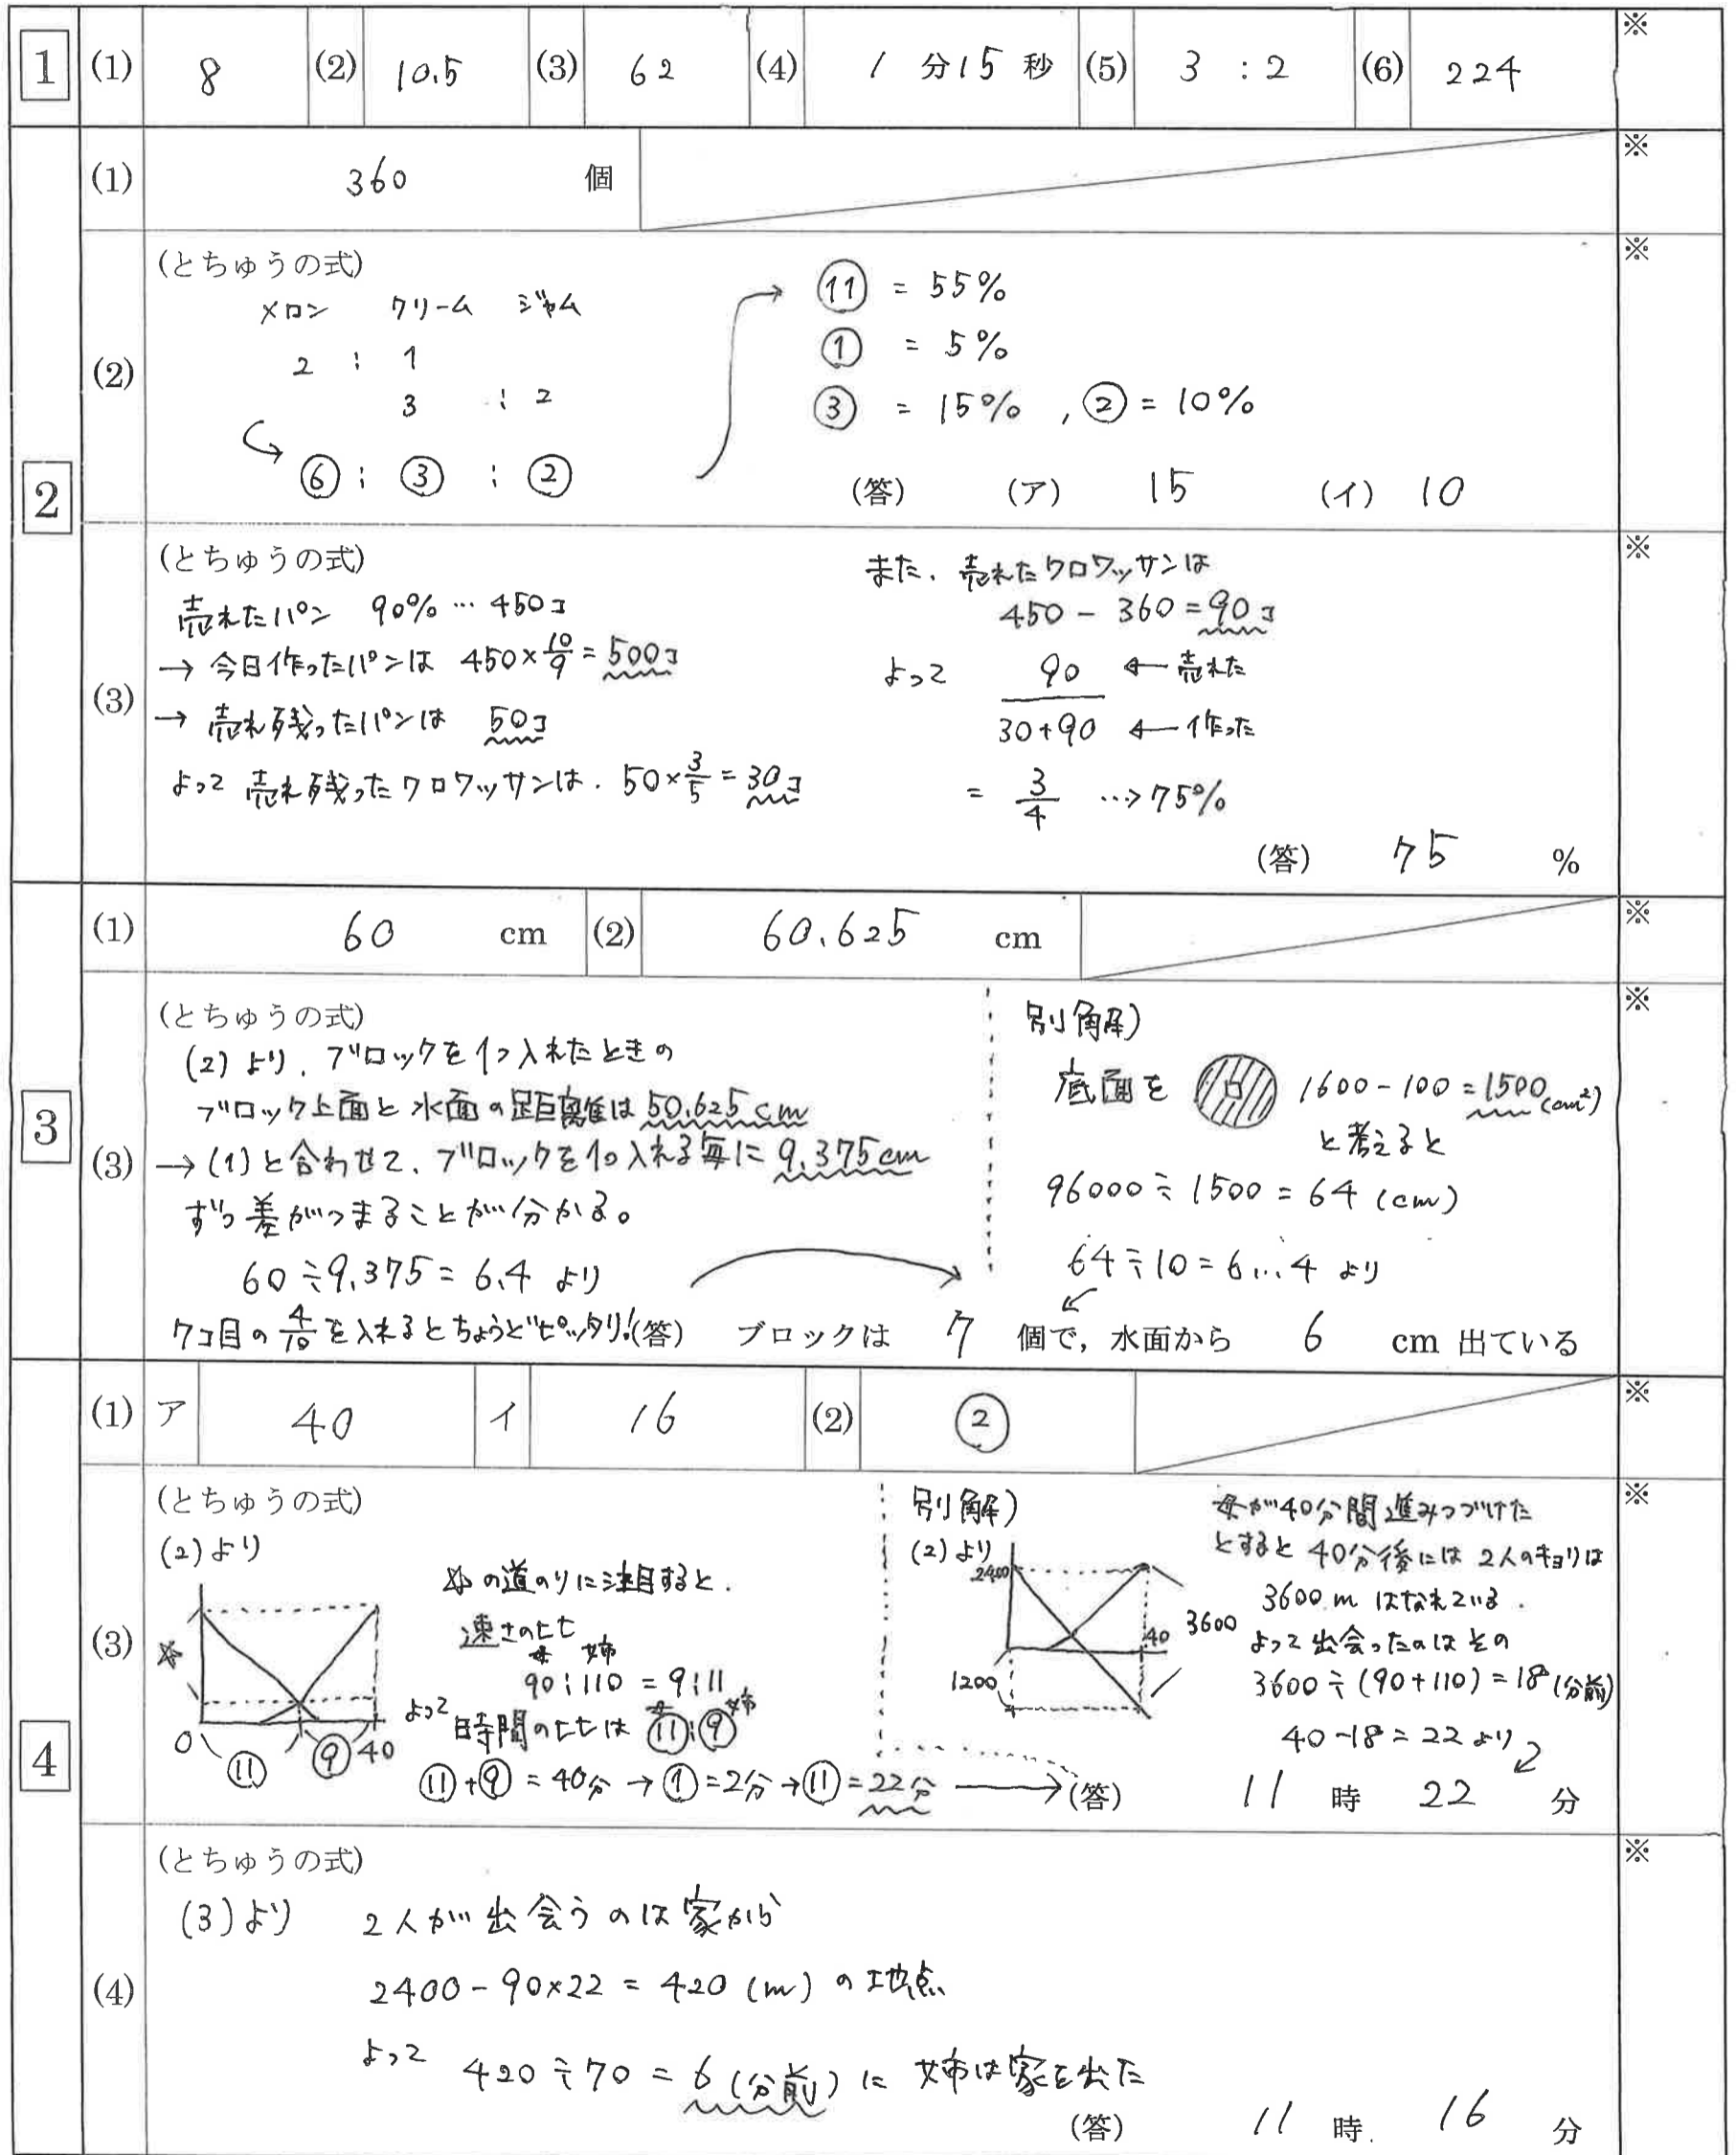 1 (1) 8 (2) 10.5 (3) 62 (4) 1 分 15 秒 (5) 3 : 2 (6) 224 ※
2
(1) 360 個 ※
(2) (とちゅうの式) ※
メロン クリーム ジャム
2 : 1
3 : 2
⑥ : ③ : ②
⑪ = 55%
① = 5%
③ = 15% , ② = 10%
(答) (ア) 15 (イ) 10
(3) (とちゅうの式) ※
売れたパン 90% … 450コ
→ 今日作ったパンは 450×10/9 = 500コ
→ 売れ残ったパンは 50コ
よって 売れ残ったクロワッサンは. 50×3/5 = 30コ
また、売れたクロワッサンは
450 - 360 = 90コ
よって 90 ← 売れた
30+90 ← 作った
= 3/4 …> 75%
(答) 75 %
3
(1) 60 cm (2) 60.625 cm ※
(3) (とちゅうの式) ※
(2) より、ブロックを1つ入れたときの
ブロック上面と水面の距離は 50.625 cm
→ (1) と合わせて、ブロックを1つ入れる毎に 9.375cm
ずつ差がつまることが分かる。
60÷9.375 = 6.4 より
7コ目の 4/10 を入れるとちょうどピッタリ!
別解)
底面を 1600-100 = 1500(cm²)
と考えると
96000÷1500 = 64 (cm)
64÷10 = 6…4 より
(答) ブロックは 7 個で, 水面から 6 cm 出ている
4
(1) ア 40 イ 16 (2) ② ※
(3) (とちゅうの式) ※
(2)より
☆の道のりに注目すると.
速さの比
母 姉
90:110 = 9:11
よって 時間の比は ⑪:⑨
母 姉
☆
0 ⑪ ⑨ 40
⑪+⑨ = 40分 → ① = 2分 → ⑪ = 22分
別解)
(2)より
2400
1200
40
3600
母が40分間進みつづけた
とすると 40分後には 2人のキョリは
3600 m はなれている.
よって出会ったのはその
3600÷(90+110) = 18(分前)
40-18 = 22 より
(答) 11 時 22 分
(4) (とちゅうの式) ※
(3)より 2人が出会うのは家から
2400-90×22 = 420 (m) の地点
よって 420÷70 = 6(分前) に 姉は家を出た
(答) 11 時. 16 分